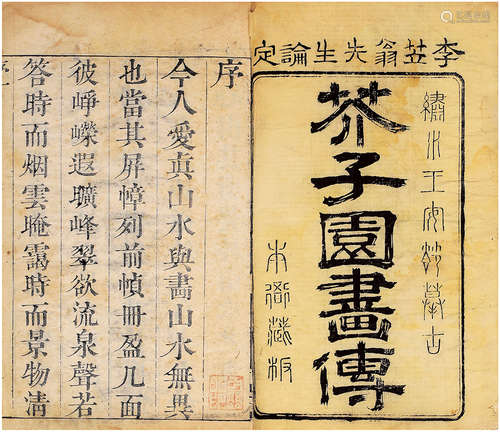 李苙翁先生論定
繡水王安節摹古
芥子園畫傳
本衙藏板
序
今人愛真山水與畫山水無異
也當其屏幛列前幀冊盈几面
彼崢嶸遐曠峰翠欲流泉聲若
答時而烟雲晻靄時而景物清